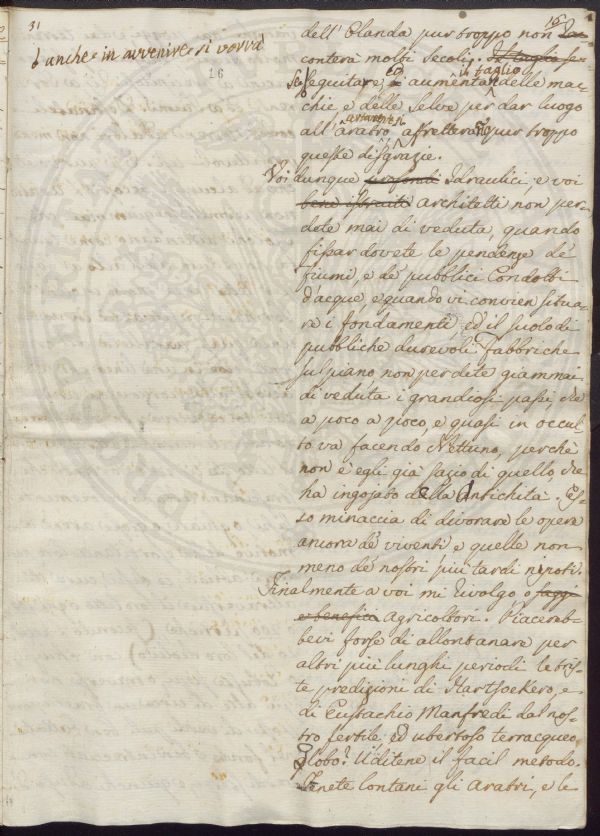 31
16
b anche in avvenire si vorrà
16
dell' Olanda pur troppo non
conterà molti secoli. Il taglio se
Se
seguitare, ed aumentar
il taglio
delle mac
chie e delle Selve per dar luogo
all' aratro affretterà pur troppo
queste disgrazie.
Voi dunque profondi Idraulici, e voi
bene istruiti architetti non per-
dete mai di veduta, quando
fissar dovete le pendenze de'
fiumi, e de' pubblici Condotti
d'acque, e quando vi convien situa-
re i fondamenti, ed il suolo di
pubbliche durevoli Fabbriche
sul piano non perdete giammai
di veduta i grandiosi passi, che
a poco a poco, e quasi in occul
to va facendo Nettuno, perchè
non è egli già sazio di quello, che
ha ingojato della Antichità. Es-
so minaccia di divorare le opere
ancora de' viventi e quelle non
meno de' nostri più tardi nipoti.
Finalmente a voi mi rivolgo o saggi
e benefici agricoltori. Piacereb-
bevi forse di allontanare per
altri più lunghi periodi le tris-
te predizioni di Hartsoekero, e
di Eustachio Manfredi dal nos-
tro fertile ed ubertoso terracqueo
globo? Uditene il facil metodo.
Tenete lontani gli aratri, e le